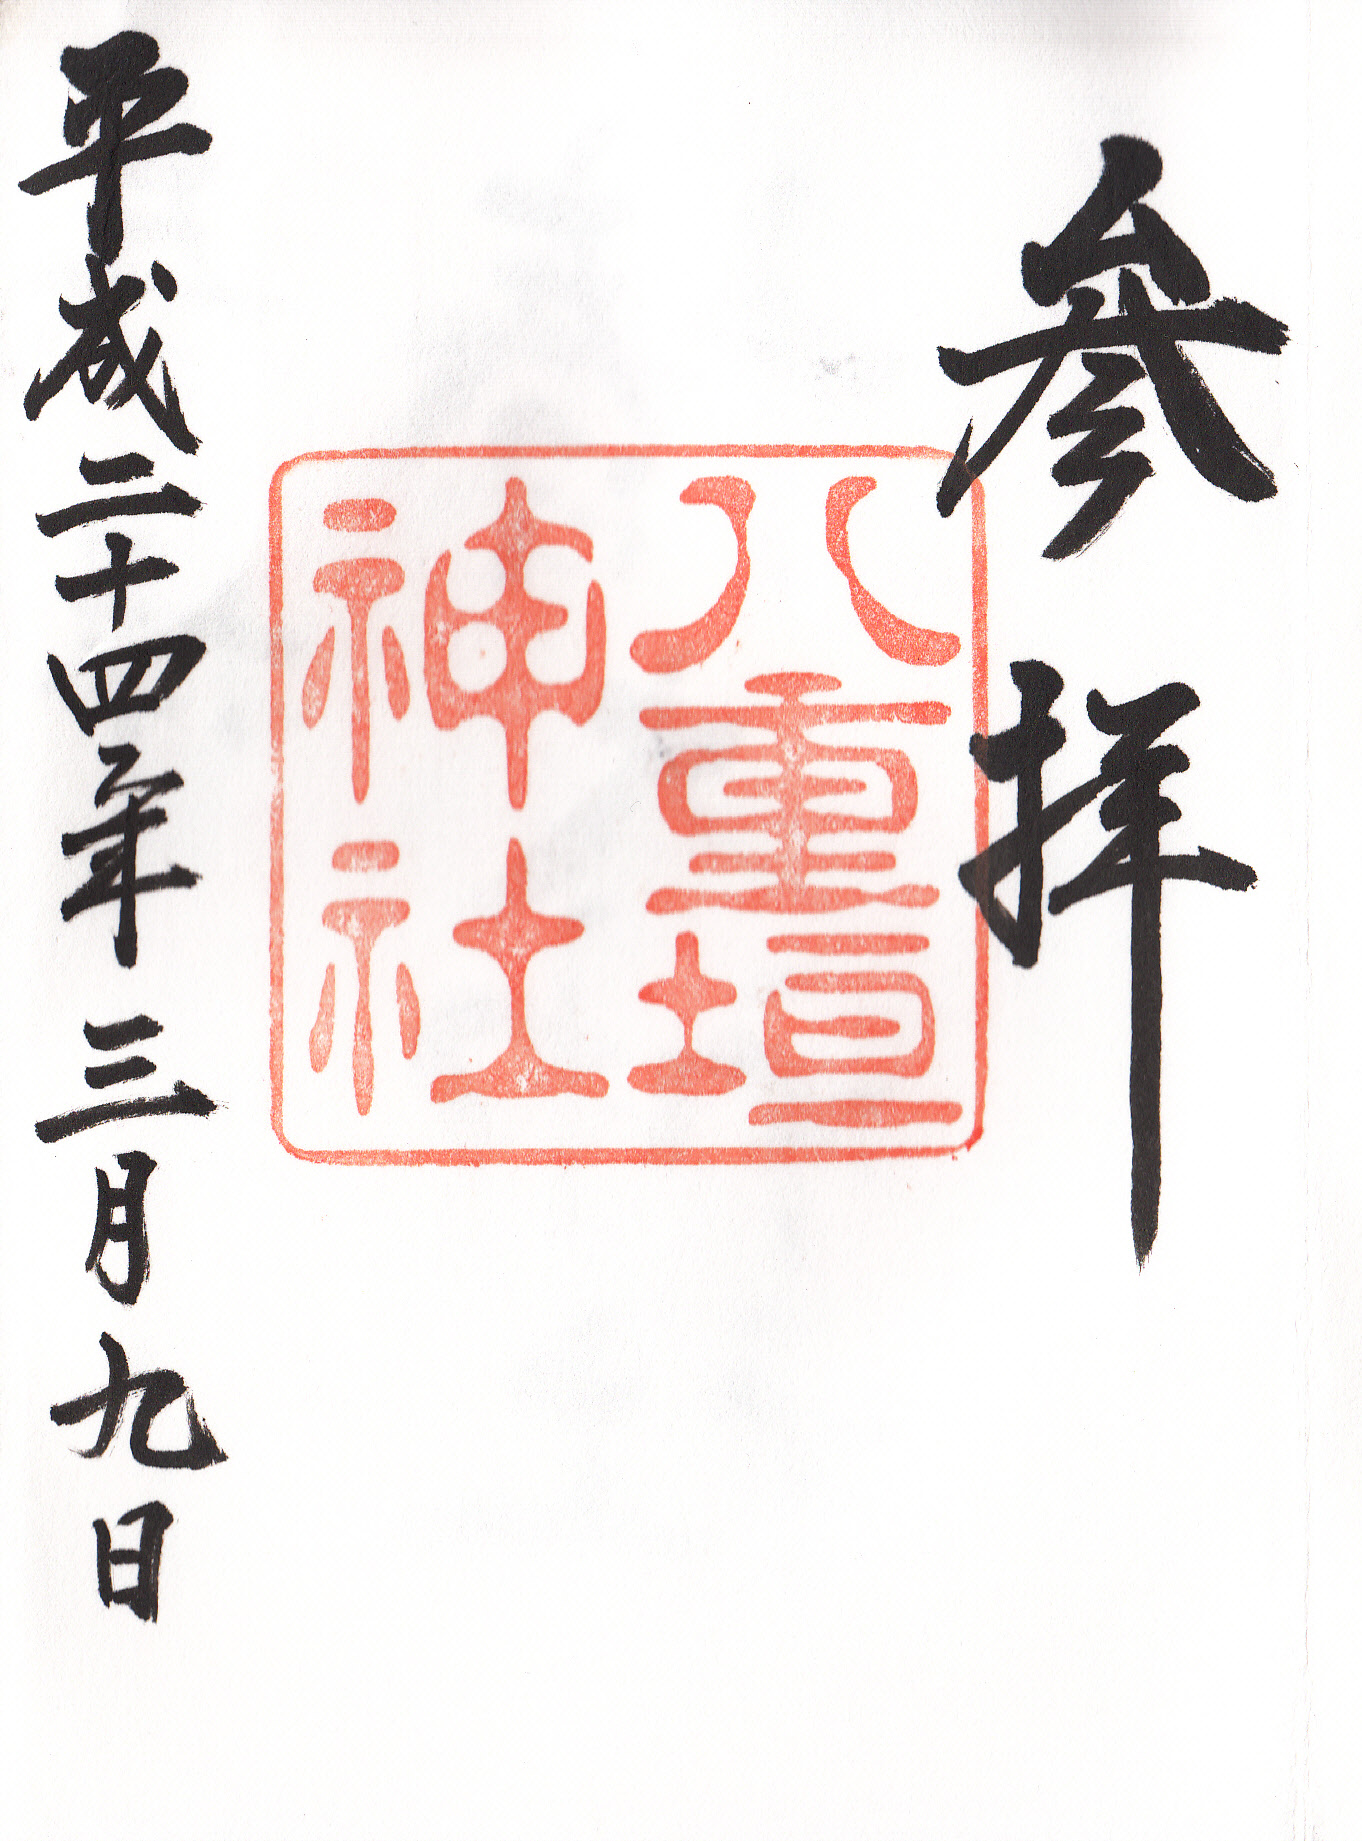 参拝
八重垣
神社
平成二十四年三月九日